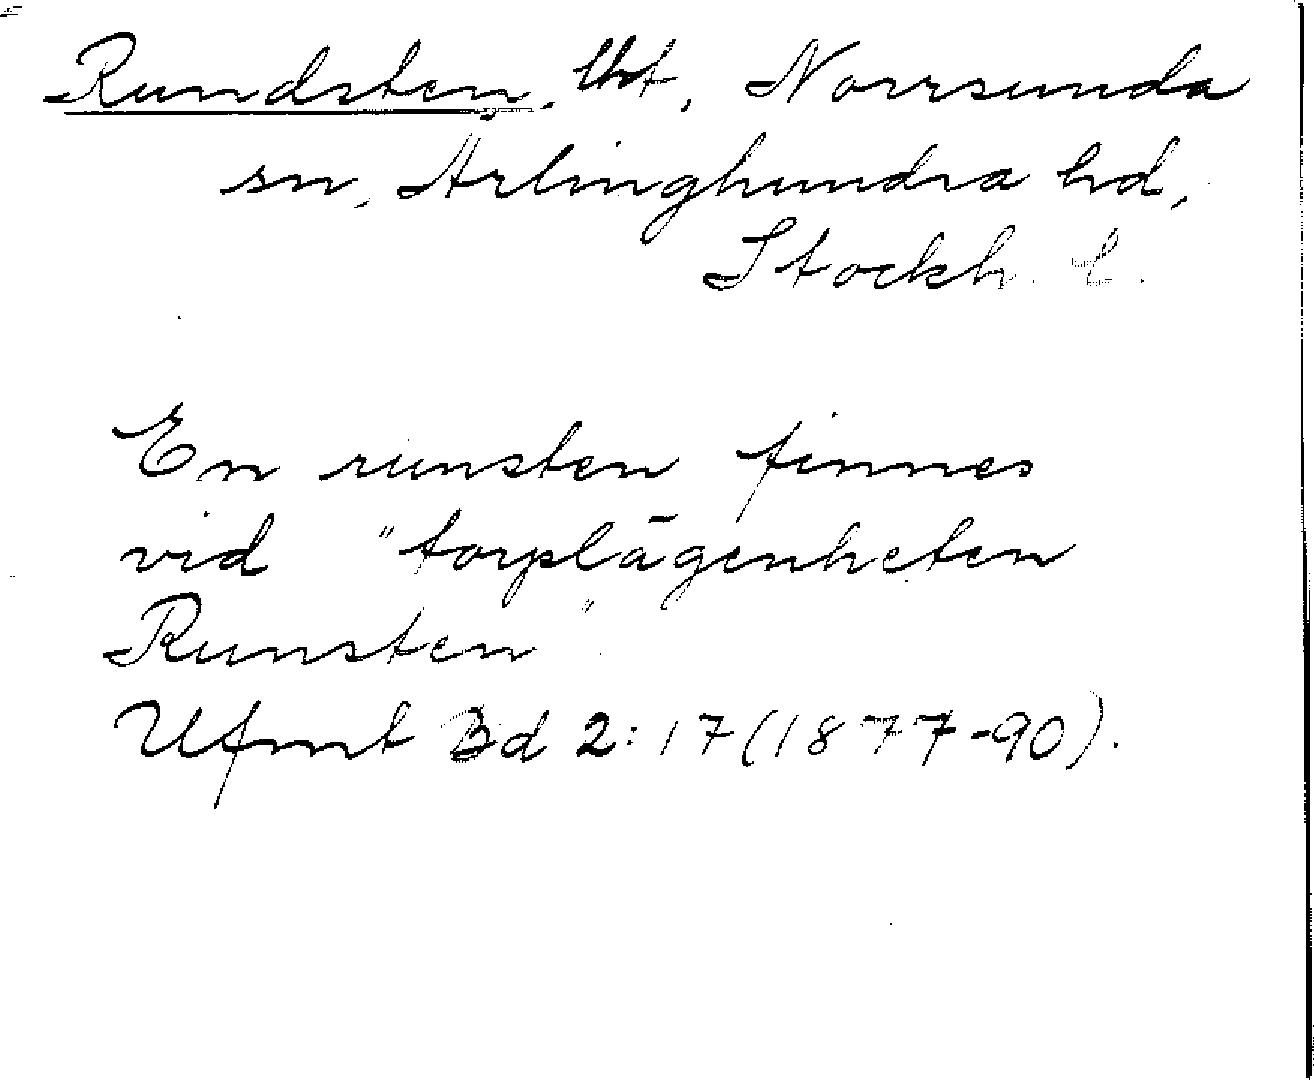 Rundsten, lht, Norrsunda
sn, Ärlinghundra hd,
Stockh. l.
En runsten finnes
vid "torplägenheten
Runsten".
Ufmt Bd 2:17 (1877-90).